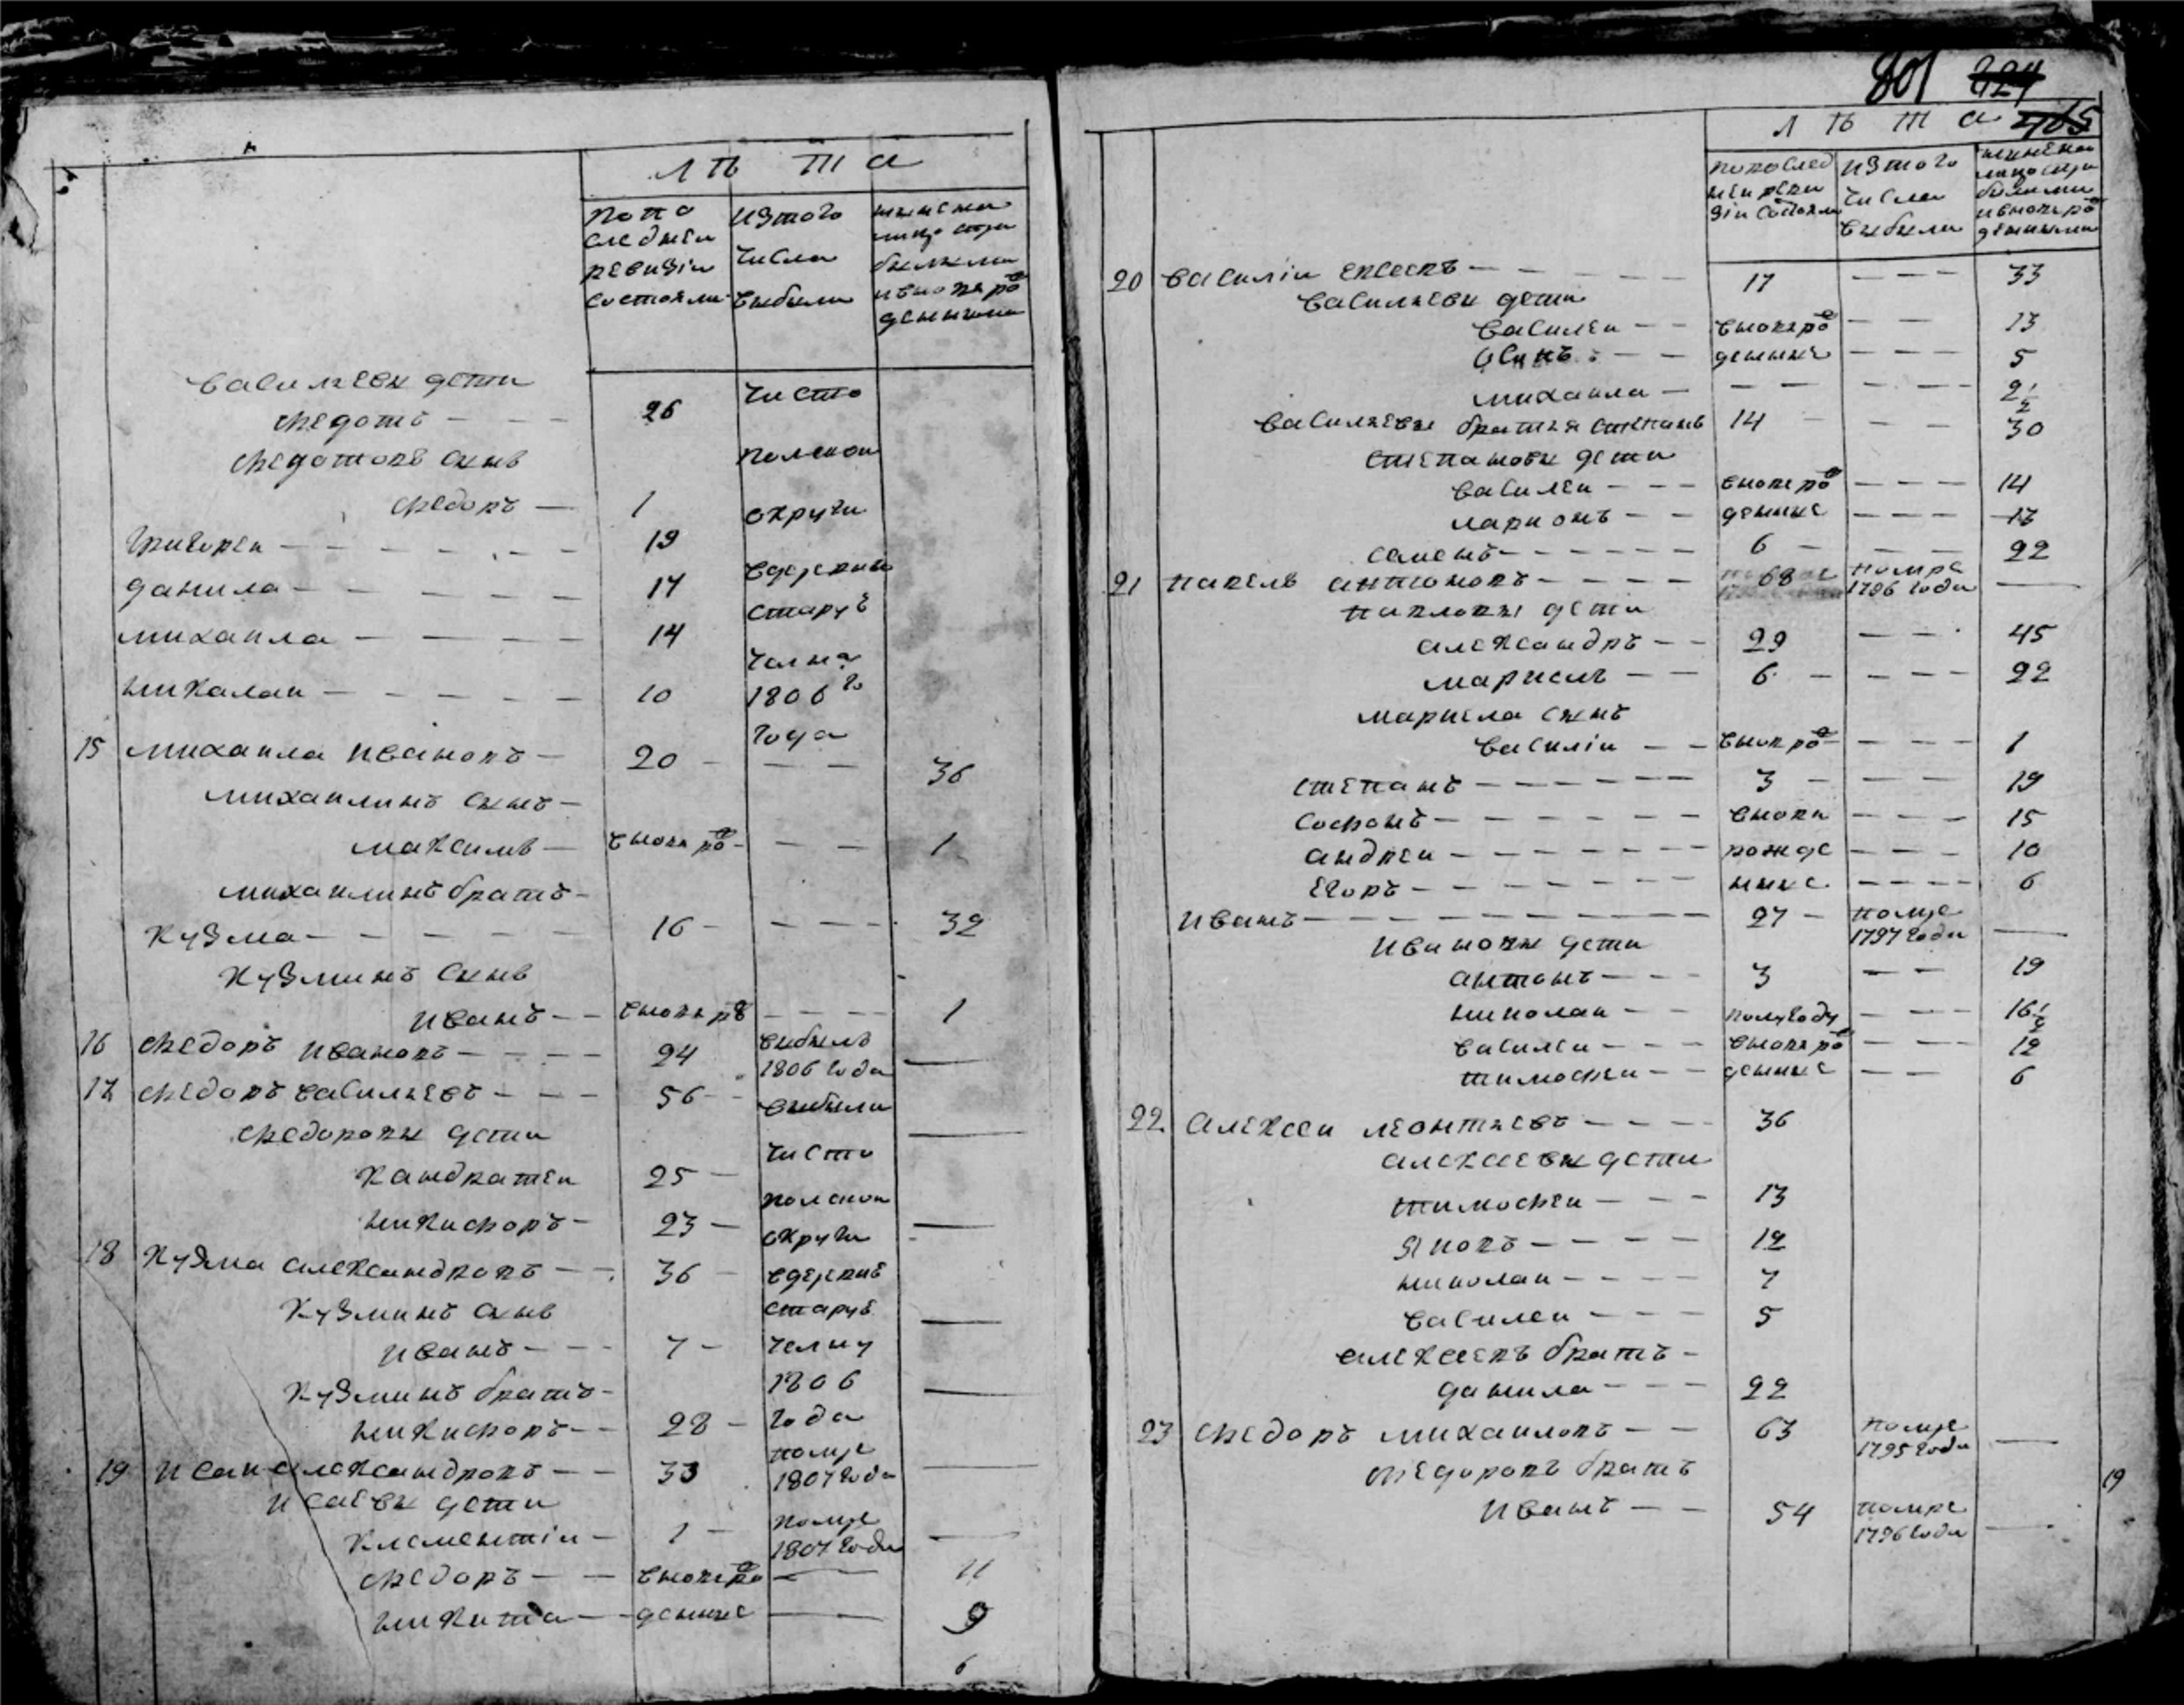 лѣта
попо следнеи ревизiи состояли
изтого числа выбыли
ныне на лицо спри былыми и вновь ро жденными
васильевы дети
федотъ — 26
чисто полской округи в деревню старую челну 1806 го года
федотовъ сынъ
федоръ — 1
григореи — 19
данила — 17
михаила — 14
николаи — 10
15 михаила ивановъ — 20 — 36
михаилинъ сынъ —
максимъ — вновь ро — 1
михаилинъ братъ —
кузма — 16 — 32
кузминъ сынъ
иванъ — вновь ро — 1
16 федоръ ивановъ — 24 выбылъ 1806 года —
17 федоръ васильевъ — 56 — выбыли чисто полской округи в деревню старую челну 1806 года —
федоровы дети
кандратеи 25 —
никифоръ — 23 —
18 кузма александровъ — 36 —
кузминъ сынъ
иванъ — 7 —
кузминъ братъ —
никифоръ — 28 —
19 исаи александровъ — 33 помре 1807 года —
исаевы дети
клементiи — 1 — помре 1807 года —
федоръ — вновь ро — 11
никита — жденные — 9
6
801 324
лѣта 705
попослед неи реви зiи состояли
изтого числа выбыли
ныне на лицо спри былыми и вновь ро жденными
20 василiи евсеевъ — 17 — 33
васильевы дети
василеи — вновь ро — 13
осипъ — жденные — 5
михаила — 2 1/2
васильевы братья степанъ 14 — 30
степановы дети
василеи — вновь ро — 14
ларионъ — жденные — 13
семенъ — 6 — 22
21 павелъ антоновъ — 68 помре 1796 года —
павловы дети
александръ — 29 — 45
маркелъ — 6 — 22
маркела сынъ
василiи — вновь ро — 1
степанъ — 3 — 19
софонъ — вновь — 15
андреи — рожде — 10
егоръ — нные — 6
иванъ — 27 — помре 1797 года —
ивановы дети
антонъ — 3 — 19
николаи — полугоду — 16 1/2
василеи — вновь ро — 12
тимофеи — жденные — 6
22 алексеи леонтьевъ — 36
алексеевы дети
тимофеи — 13
яковъ — 12
николаи — 7
василеи — 5
алексеевъ братъ —
данила — 22
23 федоръ михаиловъ — 63 помре 1795 года —
федоровъ братъ
иванъ — 54 помре 1796 года —
19